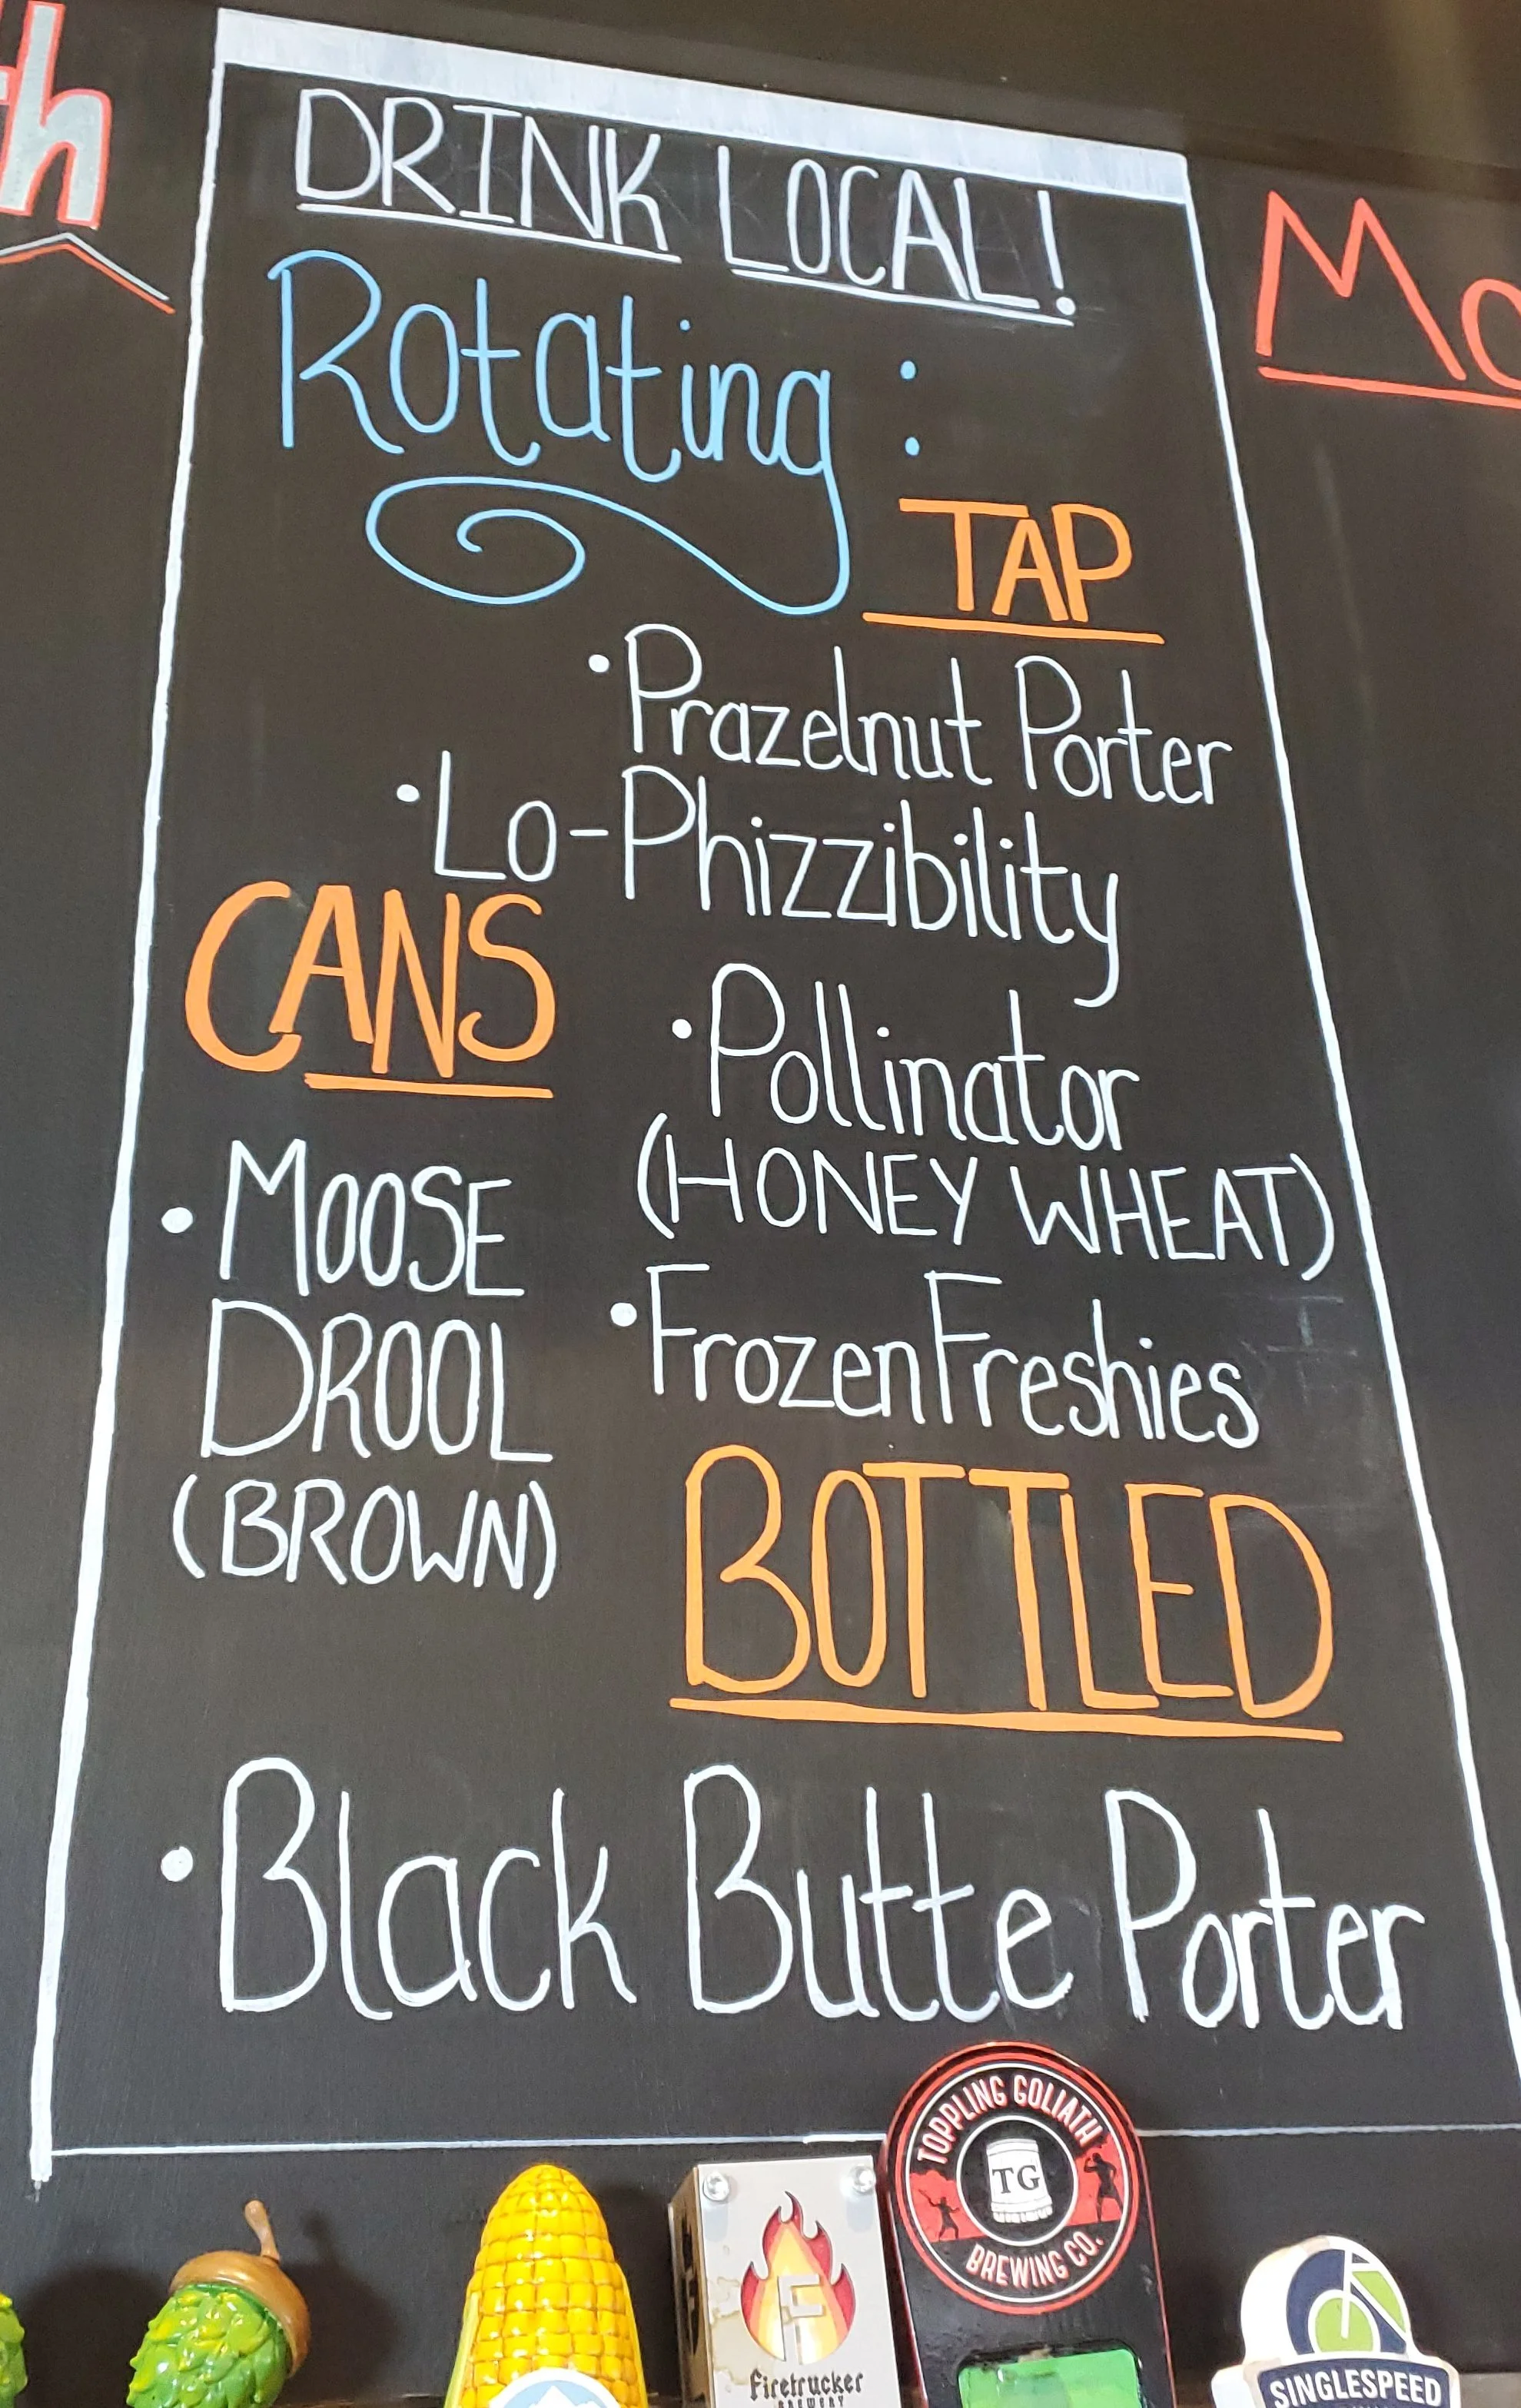 th
DRINK LOCAL!
Mo
Rotating:
TAP
•Prazelnut Porter
•Lo-Phizzibility
•Pollinator
(HONEY WHEAT)
•Frozen Freshies
CANS
•MOOSE
DROOL
(BROWN)
BOTTLED
•Black Butte Porter
TOPPLING GOLIATH
TG
BREWING CO.
F
Firetrucker
BREWERY
SINGLESPEED